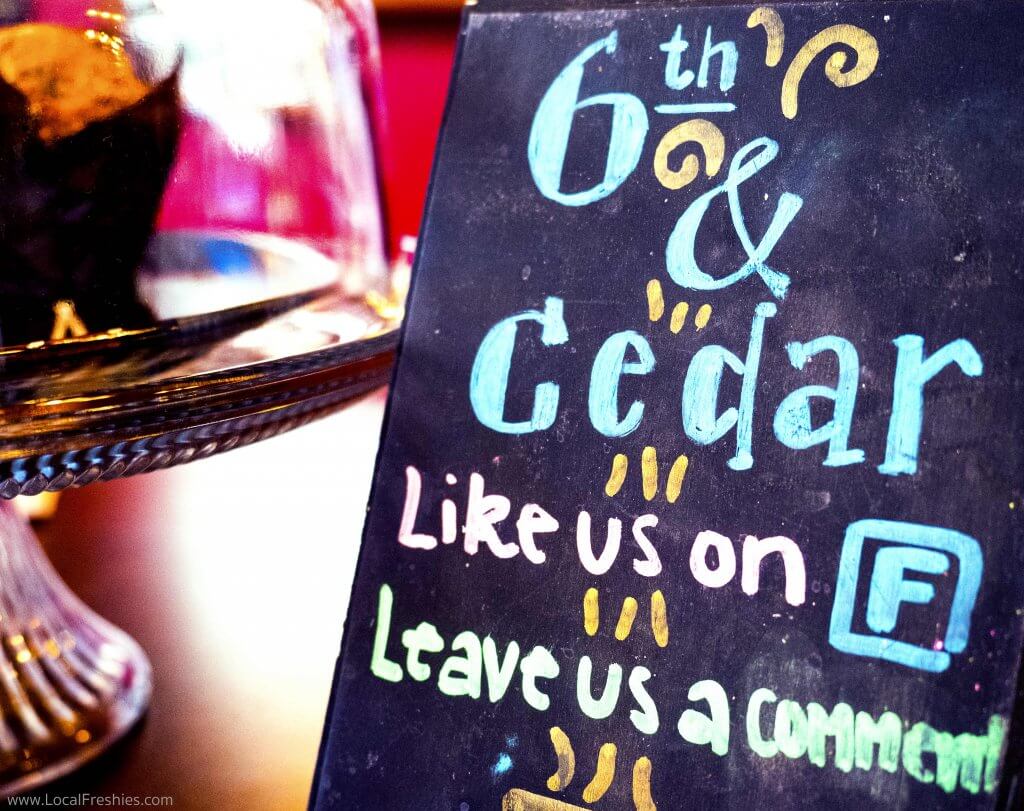 6th
&
Cedar
Like us on F
Leave us a comment
www.LocalFreshies.com